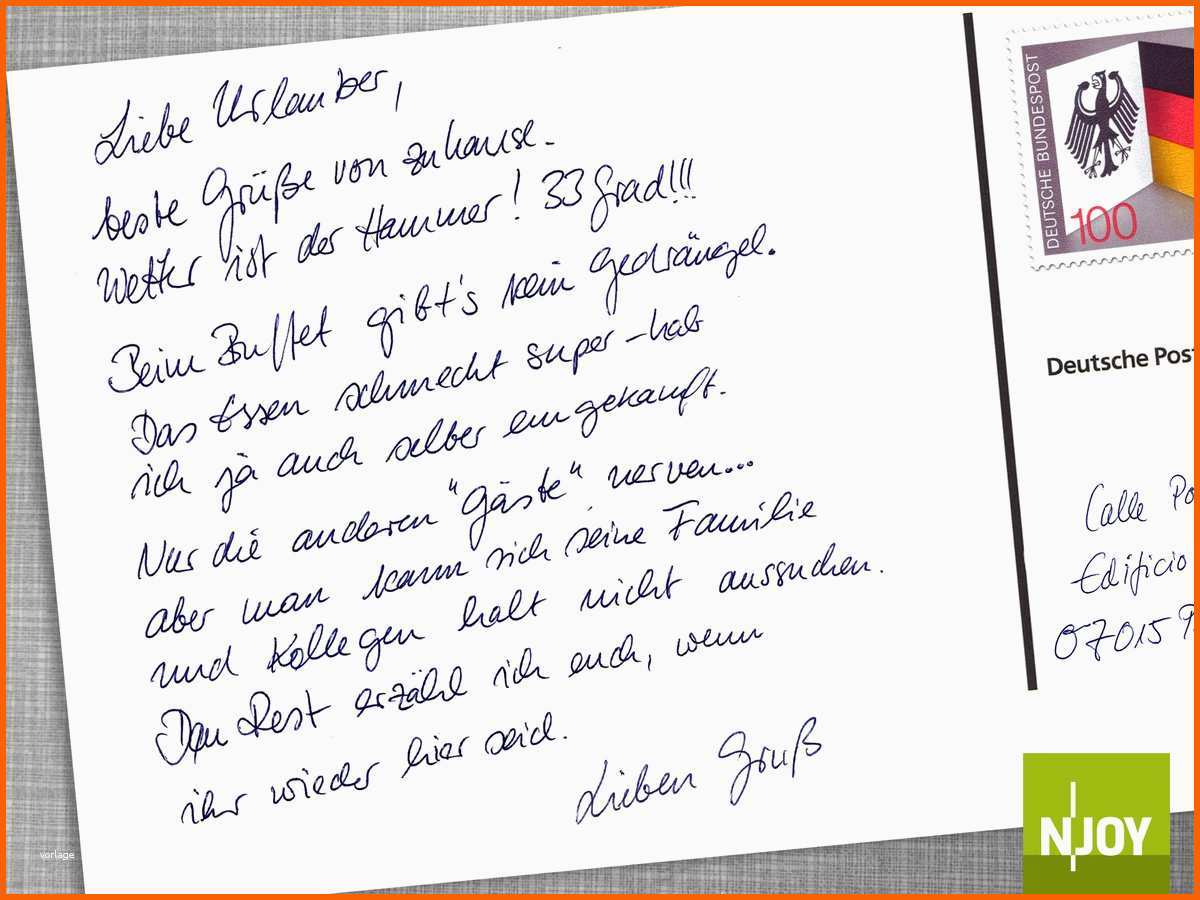 Liebe Urlauber,
beste Grüße von zuhause.
Wetter ist der Hammer! 33 Grad!!!
Beim Buffet gibt's kein Gedrängel.
Das Essen schmeckt super - hab
ich ja auch selber eingekauft.
Nur die anderen "Gäste" nerven...
aber man kann sich seine Familie
und Kollegen halt nicht aussuchen.
Den Rest erzähl ich euch, wenn
ihr wieder hier seid.
Lieben Gruß
DEUTSCHE BUNDESPOST
100
Deutsche Pos
Calle Po
Edificio
07015 9
N-JOY
vorlage